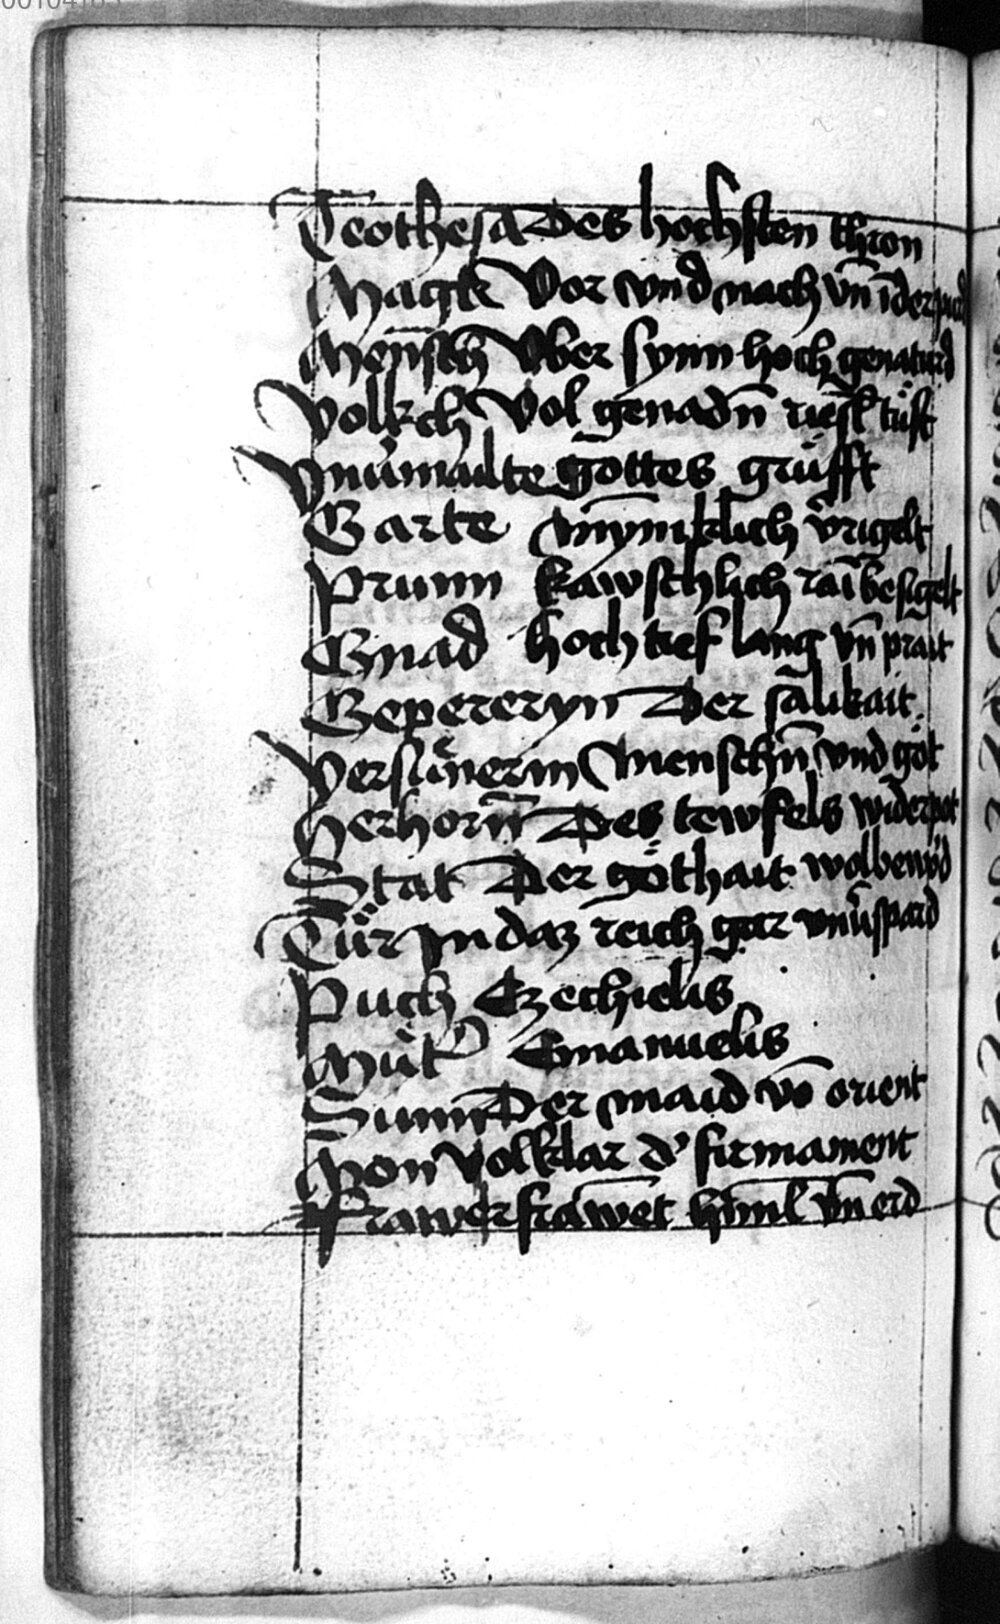 Teothesa Des hochsten thron
Magk Vor vnd nach vn̄ in der
Mensch Vber synn hoch genaturd
Volkch Vol genadn̄
gottes grüfft
Garte mynniklich v̾rigelt
Prunn kawschlich rai besigelt
Gnad hoch tief lang vn̄ prait
Gepereryn Der sälikait
Versünerin Menschn̄ vnd got
Herhorn̄ Des tewfels widerpot
Stat Der göthait wolbewa̾d
Tür In daz reich gar vnu̾spard
Puch Ezechielis
Müt̾ Emanuelis
Sunn Der maid vō orient
Mon Volklar d̾ firmament
Frawer frāwet himl vn̄ erd